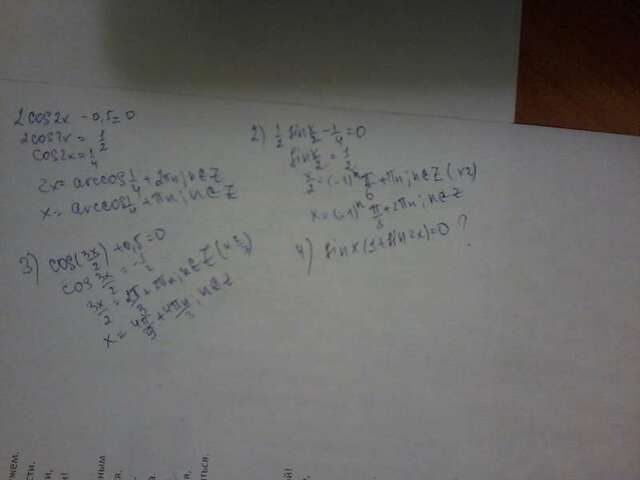 2cos2x - 0,5 = 0
2cos2x = 1/2
cos2x = 1/4
2x = arccos 1/4 + 2πn; n∈Z
x = arccos 1/4 + πn; n∈Z
2) 1/2 sin x/2 - 1/4 = 0
sin x/2 = 1/2
x/2 = (-1)^n π/6 + πn; n∈Z (x2)
x = (-1)^n π/3 + 2πn; n∈Z
3) cos(3x/2) + 0,5 = 0
cos 3x/2 = -1/2
3x/2 = 2π/3 + 2πn; n∈Z
x = 4π/9 + 4πn/3; n∈Z
4) sin x (1 + sin2x) = 0 ?
ужем.
сти.
и,
ным
ться.